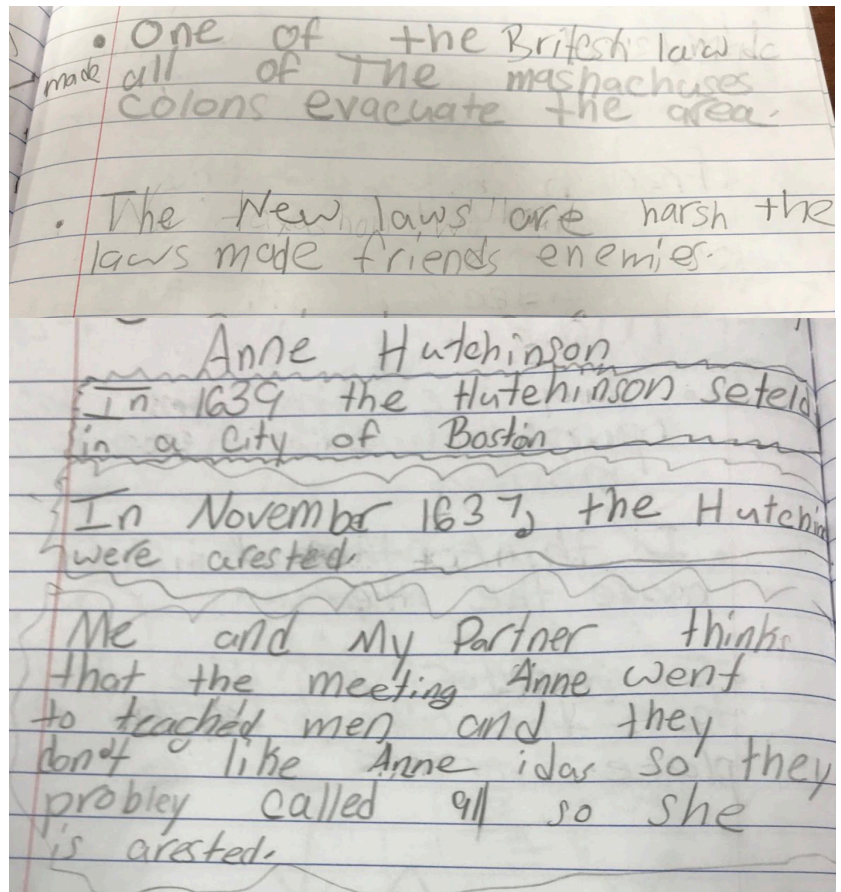 • One of the Britesh law
made all of The mashachuses
colons evacuate the area.
• The New laws are harsh the
laws made friends enemies.
Anne Hutchinson
In 1639 the Hutchinson seteld
in a City of Boston
In November 1637, the Hutchin
were arested.
Me and My Partner think
that the meeting Anne went
to teached men and they
don't like Anne idas so they
probley called 911 so she
is arested.